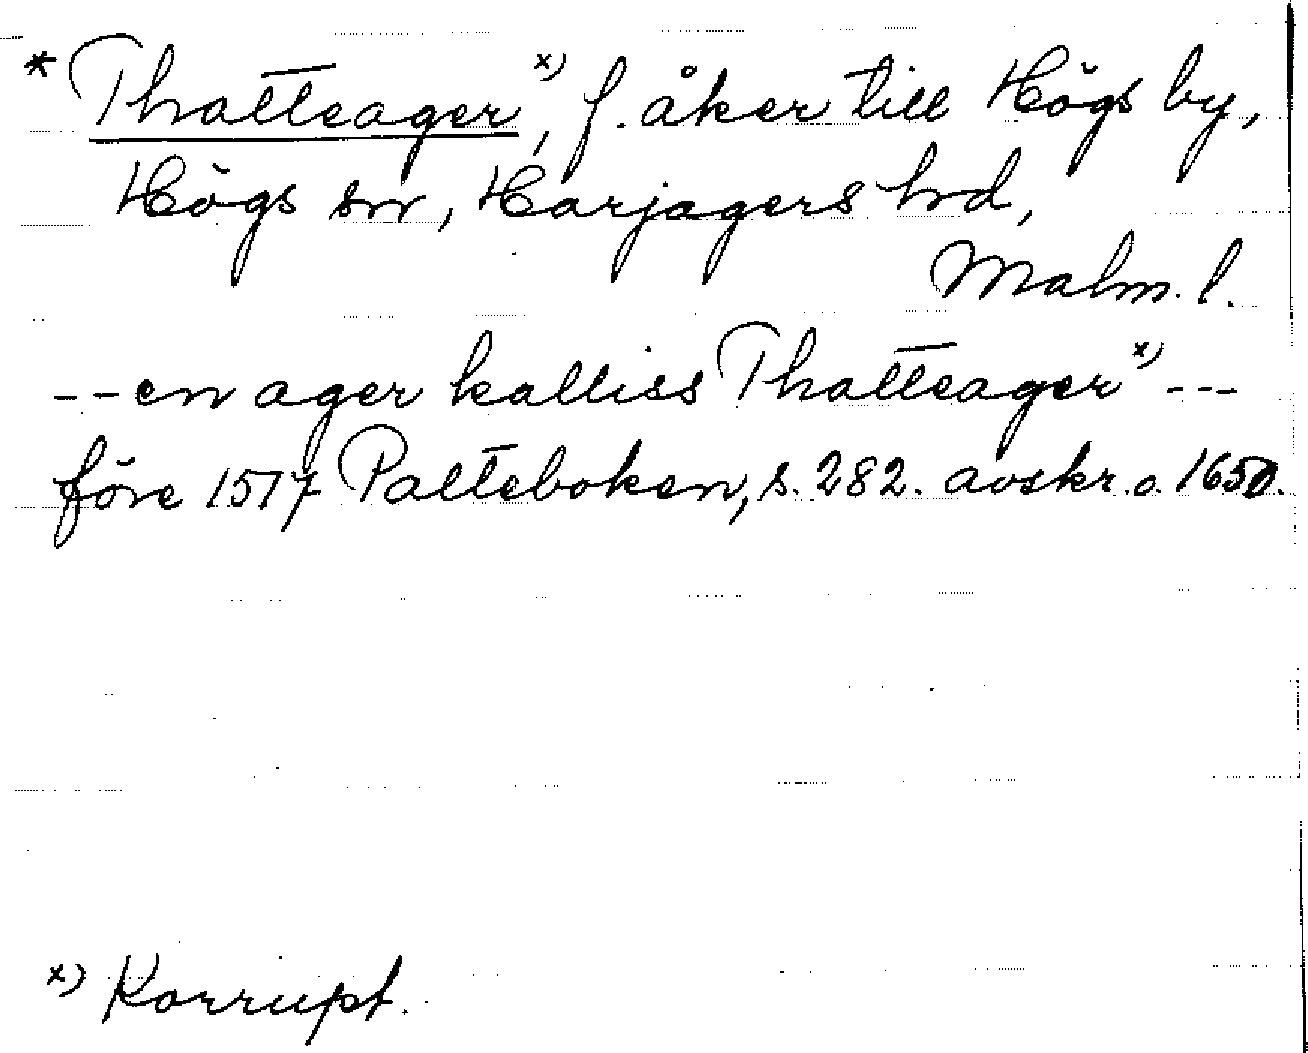 * Thatteager x), f. åker till Högs by,
Högs sn, Harjagers hd,
Malm. l.
-- en ager kalliss Thatteager x) ---
före 1517 Palteboken, s. 282. avskr. o. 1650.
x) Korrupt.